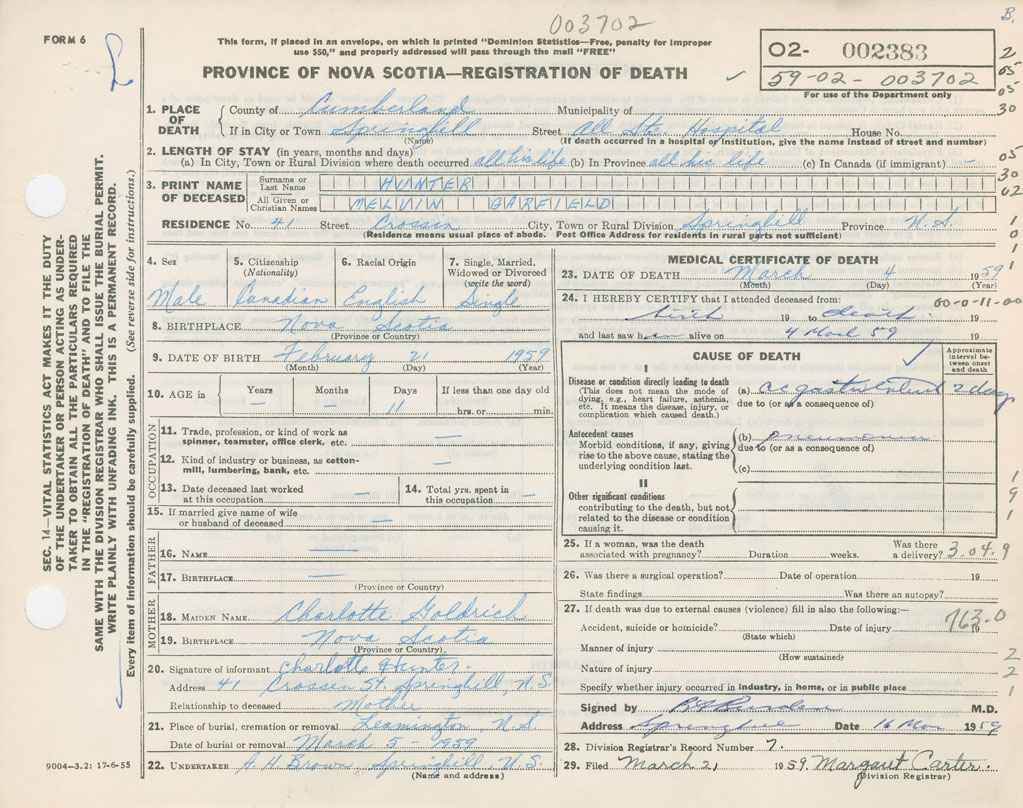 003702
B.
FORM 6
This form, if placed in an envelope, on which is printed "Dominion Statistics—Free, penalty for improper
use $50," and properly addressed will pass through the mail "FREE"
PROVINCE OF NOVA SCOTIA—REGISTRATION OF DEATH
02- 002383
59-02-003702
For use of the Department only
2
05
05
30
05
30
62
1
0
1
1. PLACE OF DEATH
County of Cumberland Municipality of
If in City or Town Springhill Street All Sts. Hospital House No.
(Name) (If death occurred in a hospital or institution, give the name instead of street and number)
2. LENGTH OF STAY (in years, months and days)
(a) In City, Town or Rural Division where death occurred all his life (b) In Province all his life (c) In Canada (if immigrant) -
3. PRINT NAME OF DECEASED
Surname or Last Name HUNTER
All Given or Christian Names MELVIN GARFIELD
RESIDENCE No. 41 Street Crossin City, Town or Rural Division Springhill Province N.S.
(Residence means usual place of abode. Post Office Address for residents in rural parts not sufficient)
4. Sex Male
5. Citizenship (Nationality) Canadian
6. Racial Origin English
7. Single, Married, Widowed or Divorced (write the word) Single
8. BIRTHPLACE Nova Scotia
(Province or Country)
9. DATE OF BIRTH February 21 1959
(Month) (Day) (Year)
10. AGE in Years Months Days If less than one day old
- - 11 hrs. or min.
OCCUPATION
11. Trade, profession, or kind of work as spinner, teamster, office clerk, etc. —
12. Kind of industry or business, as cotton-mill, lumbering, bank, etc. —
13. Date deceased last worked at this occupation —
14. Total yrs. spent in this occupation —
15. If married give name of wife or husband of deceased —
FATHER
16. NAME —
17. BIRTHPLACE —
(Province or Country)
MOTHER
18. MAIDEN NAME Charlotte Goldrich
19. BIRTHPLACE Nova Scotia
(Province or Country)
20. Signature of informant Charlotte Hunter.
Address 41 Crossin St. Springhill, N.S.
Relationship to deceased Mother
21. Place of burial, cremation or removal Leamington, N.S
Date of burial or removal March 5 - 1959
22. UNDERTAKER A.H. Brown Springhill N.S.
(Name and address)
MEDICAL CERTIFICATE OF DEATH
23. DATE OF DEATH March 4 1959
(Month) (Day) (Year)
24. I HEREBY CERTIFY that I attended deceased from: 00-0-11-00
birth 19 to death 19
and last saw him alive on 4 March 59 19
CAUSE OF DEATH
Approximate interval between onset and death
I
Disease or condition directly leading to death
(This does not mean the mode of dying, e.g., heart failure, asthenia, etc. It means the disease, injury, or complication which caused death.)
(a) ac gastro 2 days
due to (or as a consequence of)
Antecedent causes
Morbid conditions, if any, giving rise to the above cause, stating the underlying condition last.
(b) pneumonia
due to (or as a consequence of)
(c)
II
Other significant conditions
contributing to the death, but not related to the disease or condition causing it.
1
9
1
25. If a woman, was the death associated with pregnancy? Duration weeks. Was there a delivery? 3.04.9
26. Was there a surgical operation? Date of operation 19
State findings Was there an autopsy?
27. If death was due to external causes (violence) fill in also the following:—
763.0
Accident, suicide or homicide? Date of injury 19
(State which)
Manner of injury 2
(How sustained)
Nature of injury 2
Specify whether injury occurred in industry, in home, or in public place 1
Signed by M.D.
Address Springhill Date 16 Mar 1959
28. Division Registrar's Record Number 7.
29. Filed March 21 1959. Margaret Carter.
(Division Registrar)
9004—3.2: 17-6-55
SEC. 14—VITAL STATISTICS ACT MAKES IT THE DUTY
OF THE UNDERTAKER OR PERSON ACTING AS UNDER-
TAKER TO OBTAIN ALL THE PARTICULARS REQUIRED
IN THE "REGISTRATION OF DEATH" AND TO FILE THE
SAME WITH THE DIVISION REGISTRAR WHO SHALL ISSUE THE BURIAL PERMIT.
WRITE PLAINLY WITH UNFADING INK. THIS IS A PERMANENT RECORD.
Every item of information should be carefully supplied. (See reverse side for instructions.)